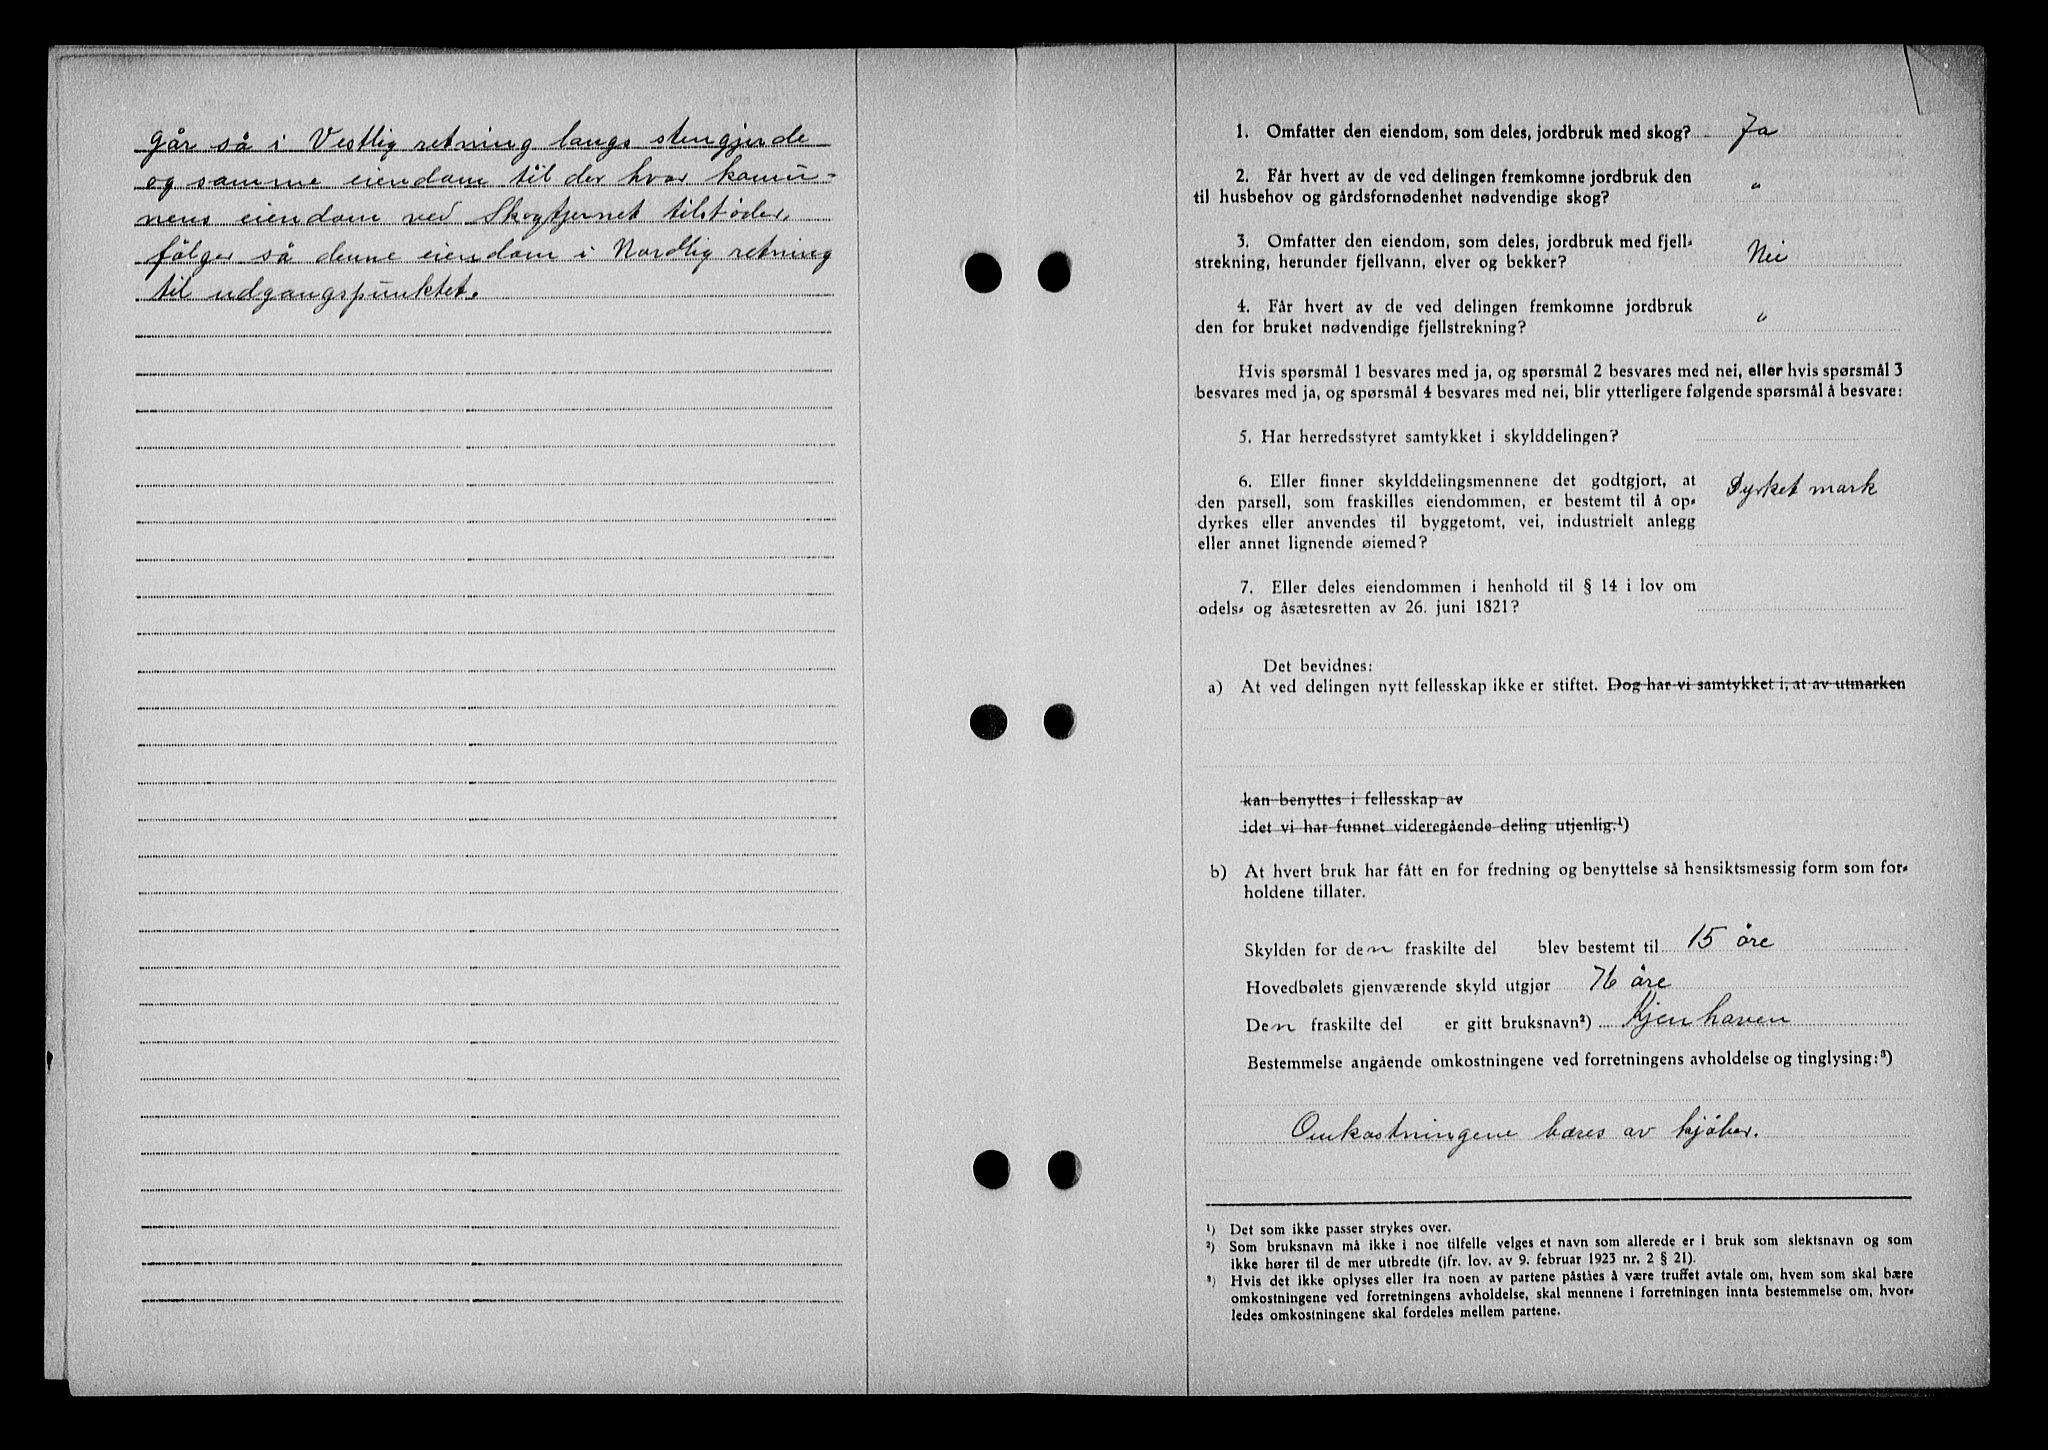 går så i Vestlig retning langs stengjerde
og samme eiendom til der hvor komu-
nens eiendom ved Skogtjernet tilstøder,
følger så denne eiendom i Nordlig retning
til udgangspunktet.
1. Omfatter den eiendom, som deles, jordbruk med skog? Ja
2. Får hvert av de ved delingen fremkomne jordbruk den
til husbehov og gårdsfornødenhet nødvendige skog? "
3. Omfatter den eiendom, som deles, jordbruk med fjell-
strekning, herunder fjellvann, elver og bekker? Nei
4. Får hvert av de ved delingen fremkomne jordbruk
den for bruket nødvendige fjellstrekning? "
Hvis spørsmål 1 besvares med ja, og spørsmål 2 besvares med nei, eller hvis spørsmål 3
besvares med ja, og spørsmål 4 besvares med nei, blir ytterligere følgende spørsmål å besvare:
5. Har herredsstyret samtykket i skylddelingen?
6. Eller finner skylddelingsmennene det godtgjort, at Dyrket mark
den parsell, som fraskilles eiendommen, er bestemt til å op-
dyrkes eller anvendes til byggetomt, vei, industrielt anlegg
eller annet lignende øiemed?
7. Eller deles eiendommen i henhold til § 14 i lov om
odels- og åsætesretten av 26. juni 1821?
Det bevidnes:
a) At ved delingen nytt fellesskap ikke er stiftet. Dog har vi samtykket i, at av utmarken
kan benyttes i fellesskap av
idet vi har funnet videregående deling utjenlig.¹)
b) At hvert bruk har fått en for fredning og benyttelse så hensiktsmessig form som for-
holdene tillater.
Skylden for den fraskilte del blev bestemt til 15 øre
Hovedbølets gjenværende skyld utgjør 76 øre
Den fraskilte del er gitt bruksnavn²) Kjenhaven
Bestemmelse angående omkostningene ved forretningens avholdelse og tinglysing:³)
Omkostningene bæres av kjøber.
¹) Det som ikke passer strykes over.
²) Som bruksnavn må ikke i noe tilfelle velges et navn som allerede er i bruk som slektsnavn og som
ikke hører til de mer utbredte (jfr. lov. av 9. februar 1923 nr. 2 § 21).
³) Hvis det ikke oplyses eller fra noen av partene påståes å være truffet avtale om, hvem som skal bære
omkostningene ved forretningens avholdelse, skal mennene i forretningen innta bestemmelse om, hvor-
ledes omkostningene skal fordeles mellem partene.